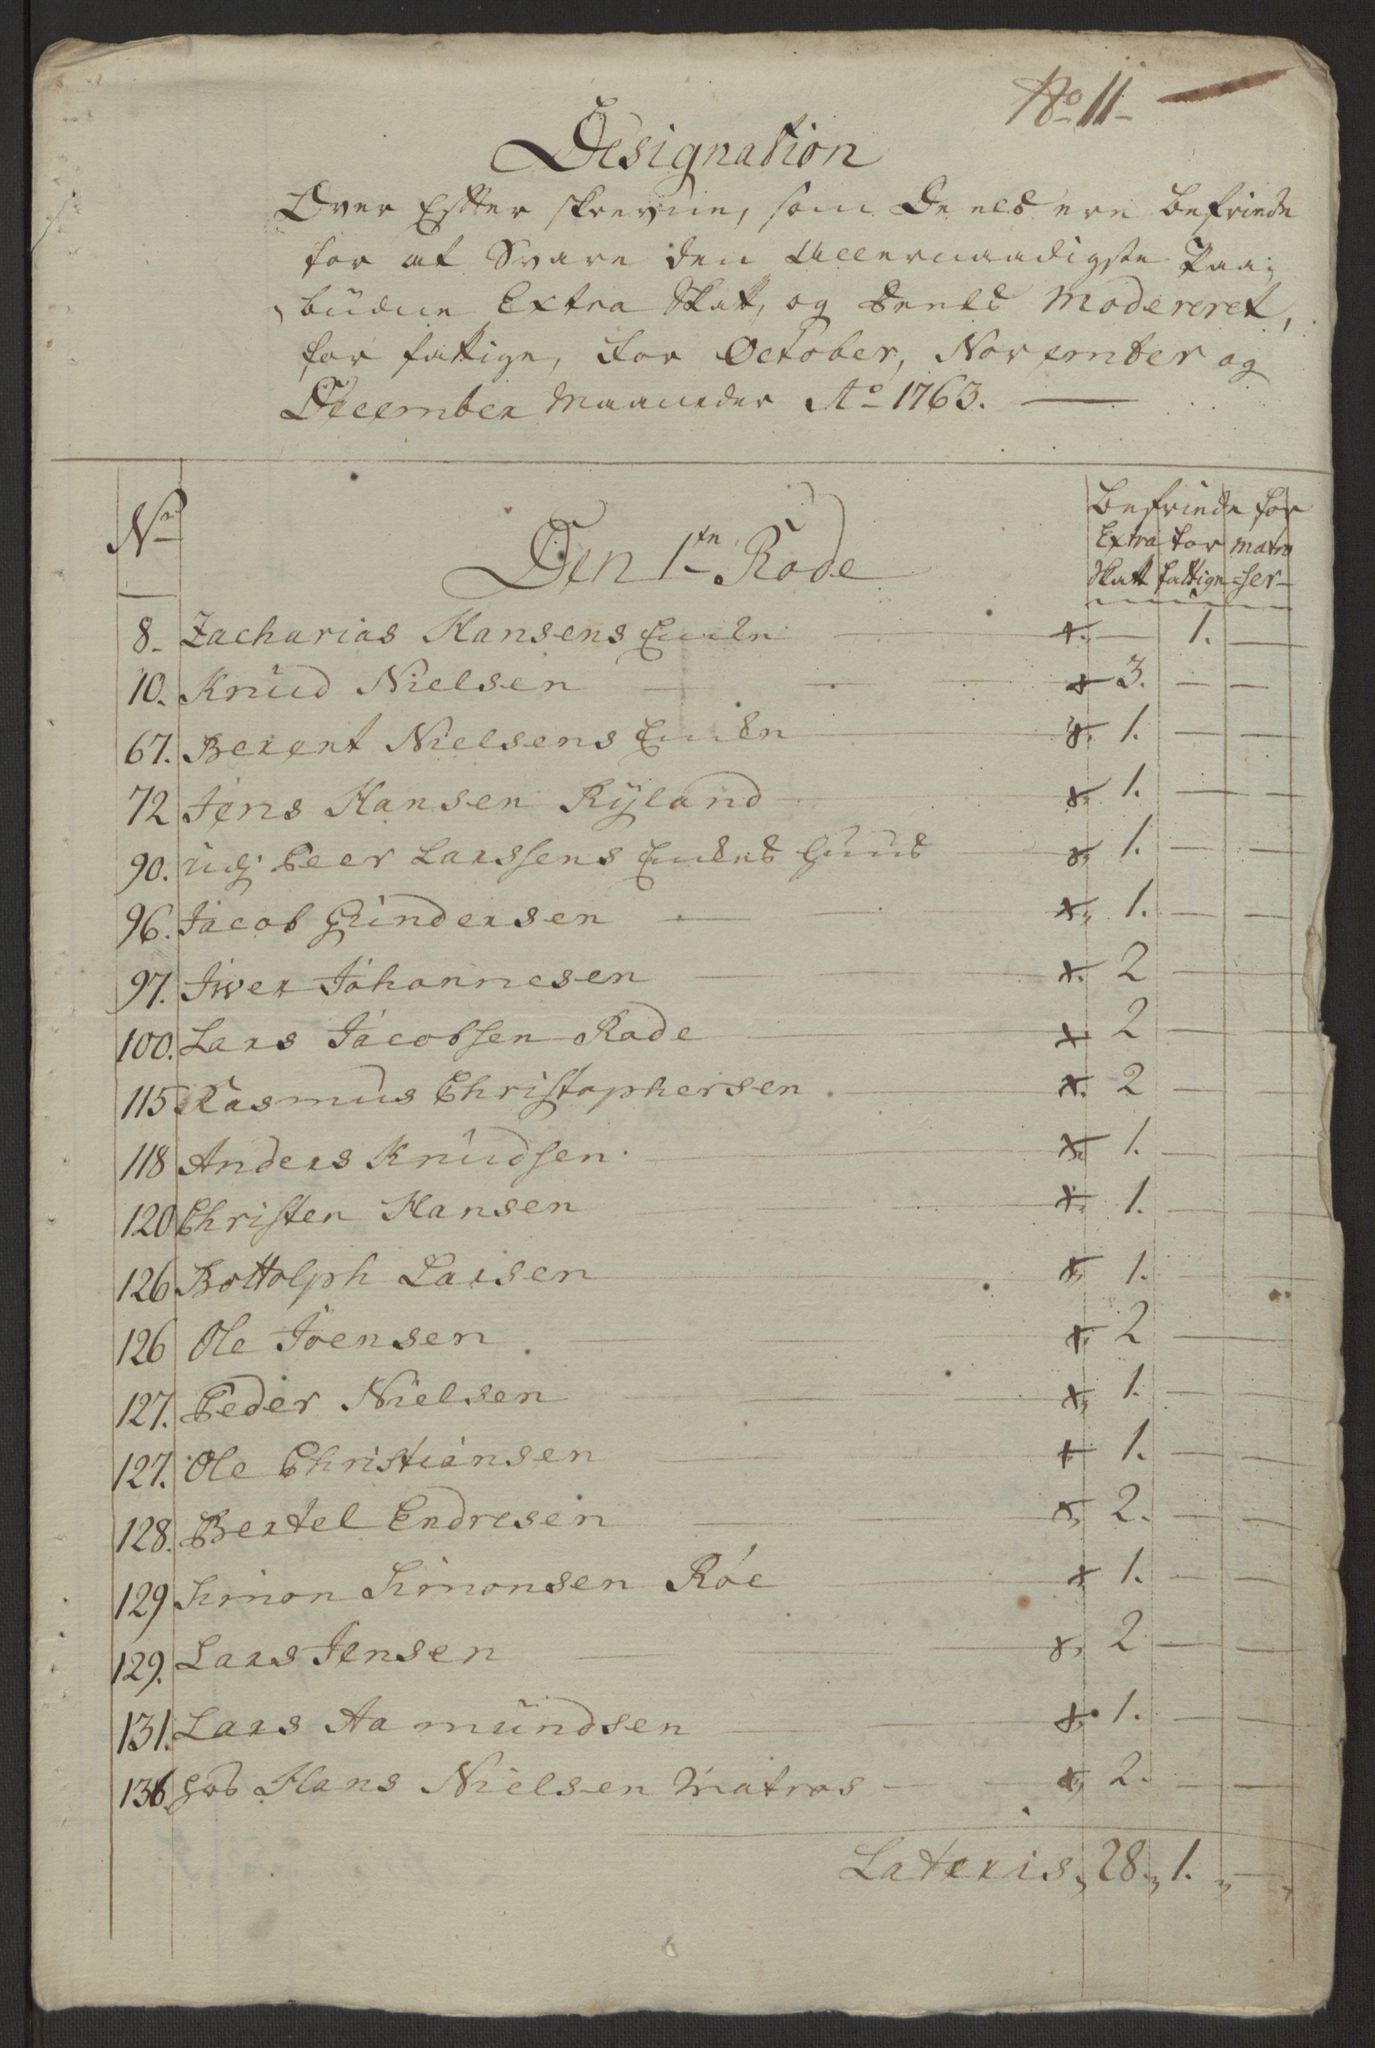 No 11
Designation
Over Efter skrevne, som Deels ere befriede
for at Svare den Allernaadigste Paa-
budne Extra Skatt, og Deels Modereret,
for fattige, for October, November og
December Maaneder Ao 1763.
Nr
Den 1te Rode
befriede for
Extra for matro
Skatt fattige ser
8. Zacharias Hansens Encke — 1. —
10. Knud Nielsen 3. — —
67. Berent Nielsens Encke 1. — —
72 Jens Hansen Ryland 1. — —
90. udj Peer Larssens Enckes Huus 1. — —
96. Jacob Gundersen 1. — —
97. Iver Johannesen 2 — —
100. Lars Jacobsen Rade 2 — —
115 Rasmus Christophersen 2 — —
118 Anders Knudsen 1. — —
120 Christen Hansen 1. — —
126 Bottolph Larsen 1. — —
126 Ole Joensen 2 — —
127. Peder Nielsen 1. — —
127. Ole Christiansen 1. — —
128. Bertel Endresen 2. — —
129 Simon Simonsen Röe 1. — —
129. Lars Jensen 2 — —
131. Lars Aamundsen 1. — —
136 hos Hans Nielsen Matros 2. — —
Lateris 28 1. —